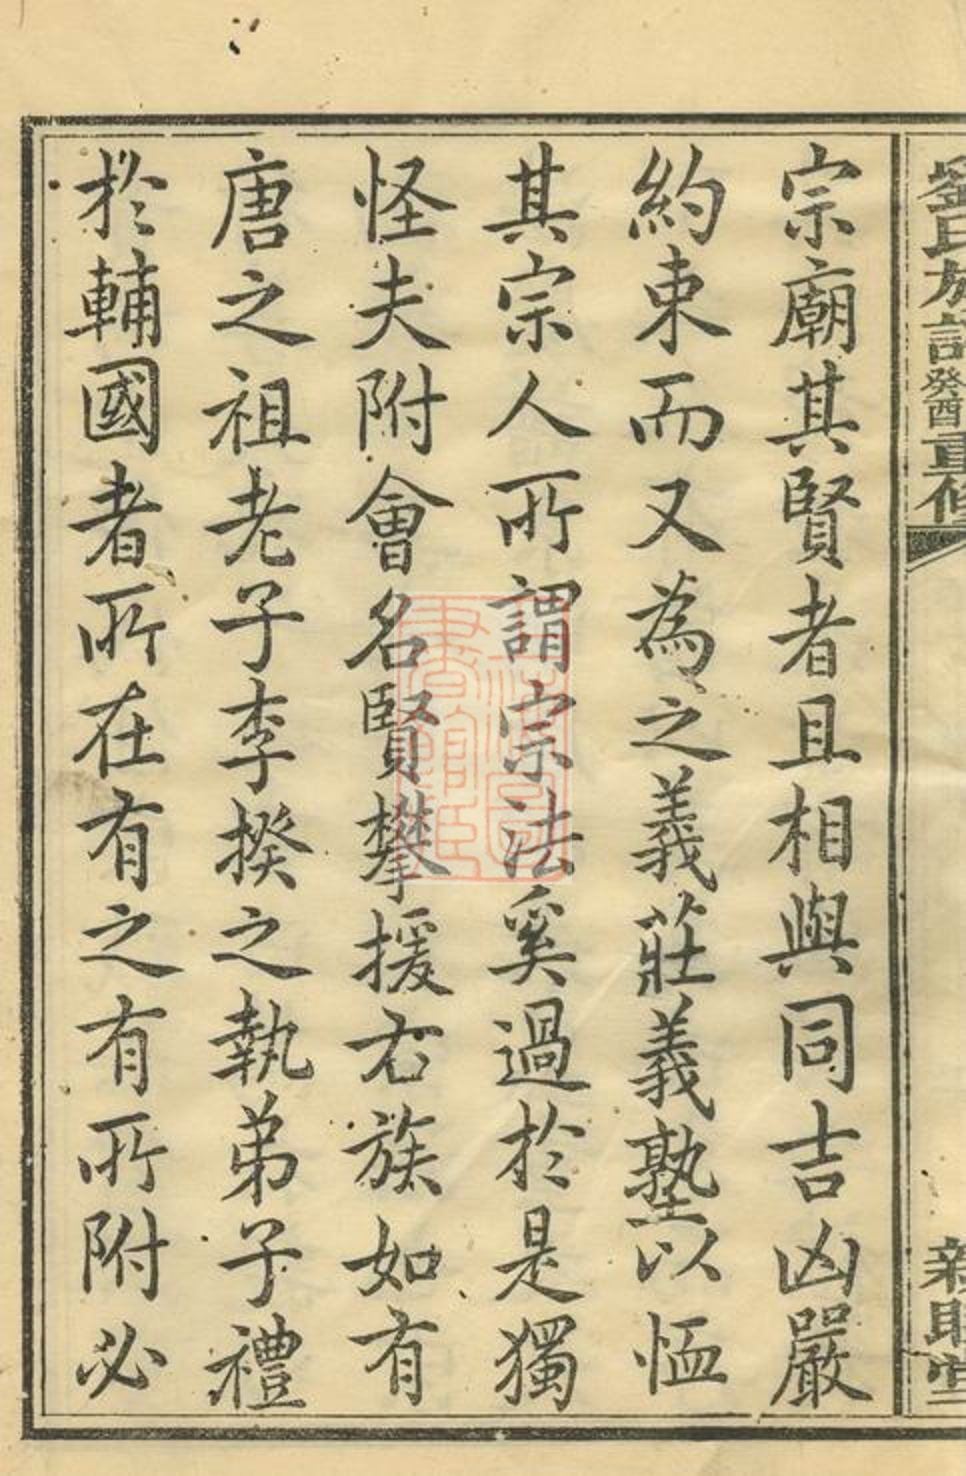 劉氏族譜癸酉重修
宗廟其賢者且相與同吉凶嚴
約束而又為之義莊義塾以恤
其宗人所謂宗法奚過於是獨
怪夫附會名賢攀援右族如有
唐之祖老子李揆之執弟子禮
於輔國者所在有之有所附必